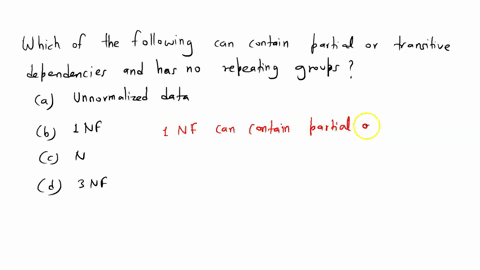 Which of the following can contain partial or transitive
dependencies and has no repeating groups?
(a) Unnormalized data
(b) 1 NF 1 NF can contain partial o
(c) N
(d) 3 NF